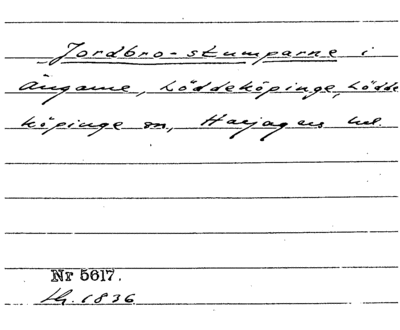 Jordbro-stumparne i
Ängarne, Löddeköpinge, Lödde
köpinge sn, Harjagers hd.
Nr 5617.
lh. 1836